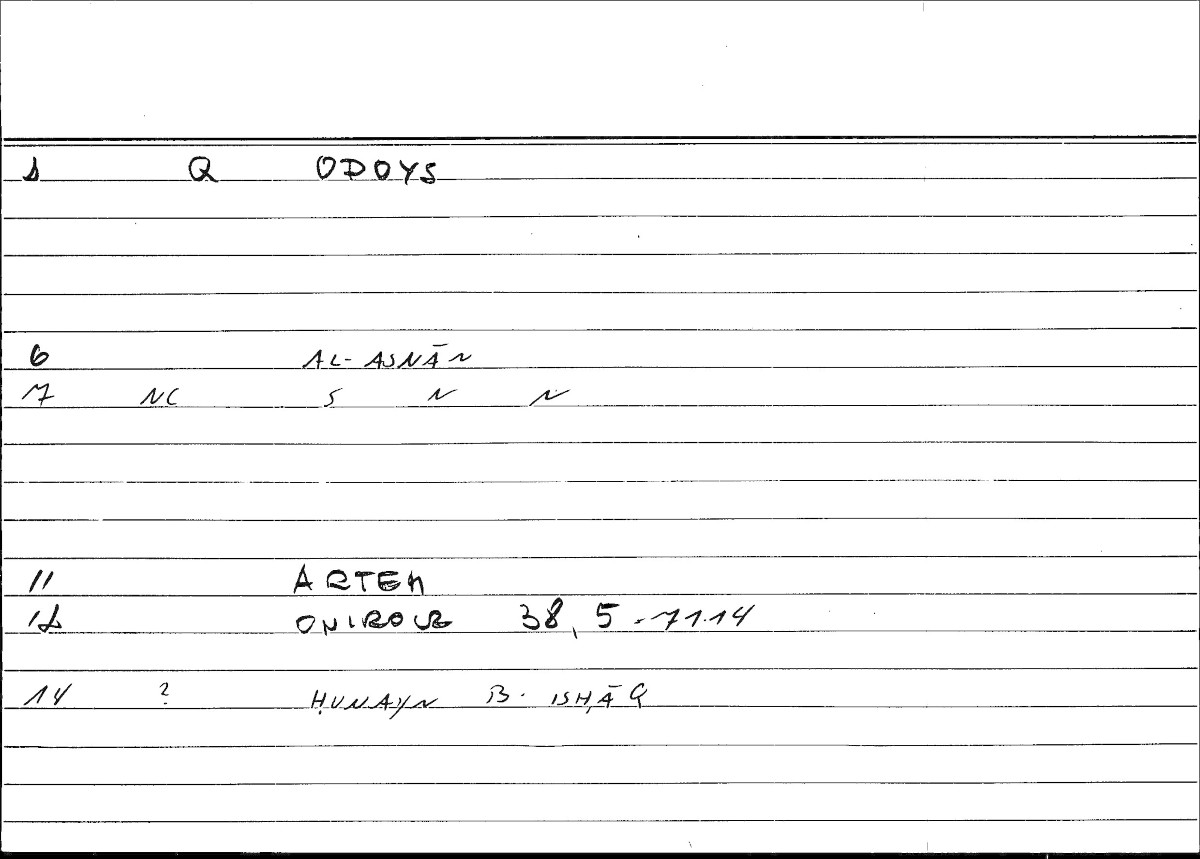 1 Q ODOYS
6 AL-ASNĀN
7 NC S N N
11 ARTEM
12 ONIROCR 38,5-71.14
14 ? ḤUNAYN B. ISḤĀQ